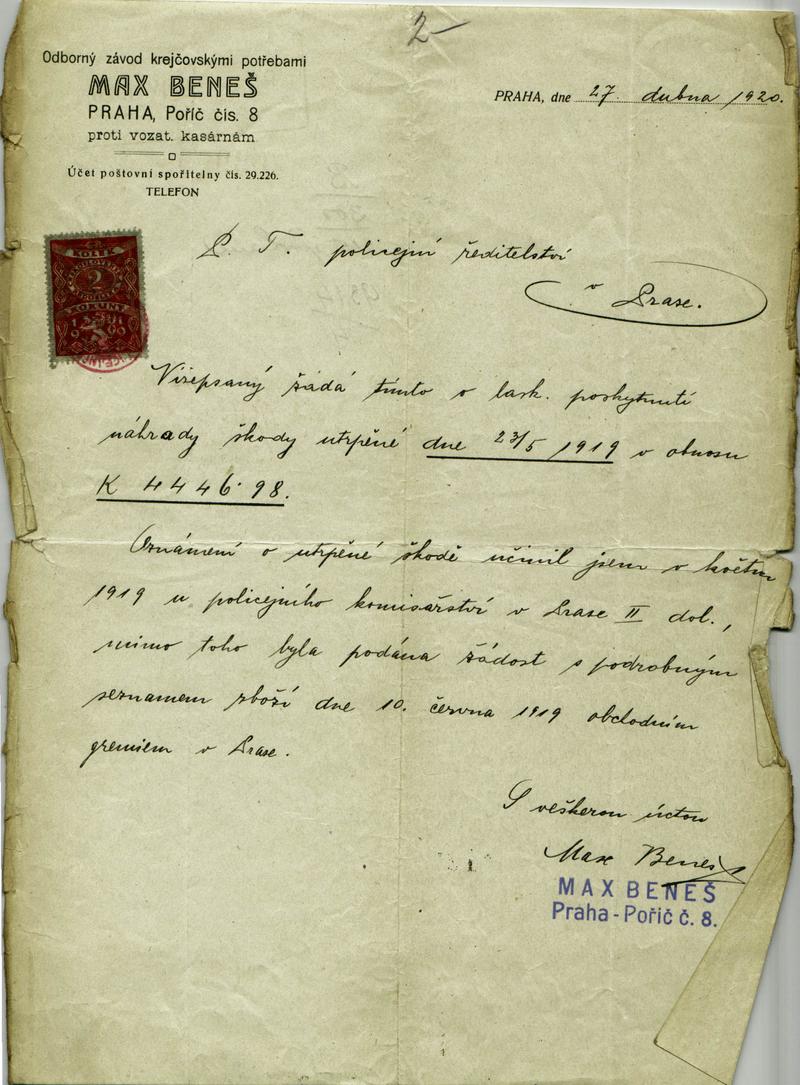 2
Odborný závod krejčovskými potřebami
MAX BENEŠ
PRAHA, Poříč čís. 8
proti vozat. kasárnám
Účet poštovní spořitelny čís. 29.226.
TELEFON
PRAHA, dne 27. dubna 1920.
KOLEK
2
KORUNY
P. T. policejní ředitelství
v Praze.
Výšepsaný žádá tímto o lask. poskytnutí
náhrady škody utrpěné dne 23/5 1919 v obnosu
K 4446·98.
Oznámení o utrpěné škodě učinil jsem v květnu
1919 u policejního komisařství v Praze II dol.,
mimo toho byla podána žádost s podrobným
seznamem zboží dne 10. června 1919 obchodním
gremiem v Praze.
S veškerou úctou
Max Beneš
MAX BENEŠ
Praha - Pořič č. 8.